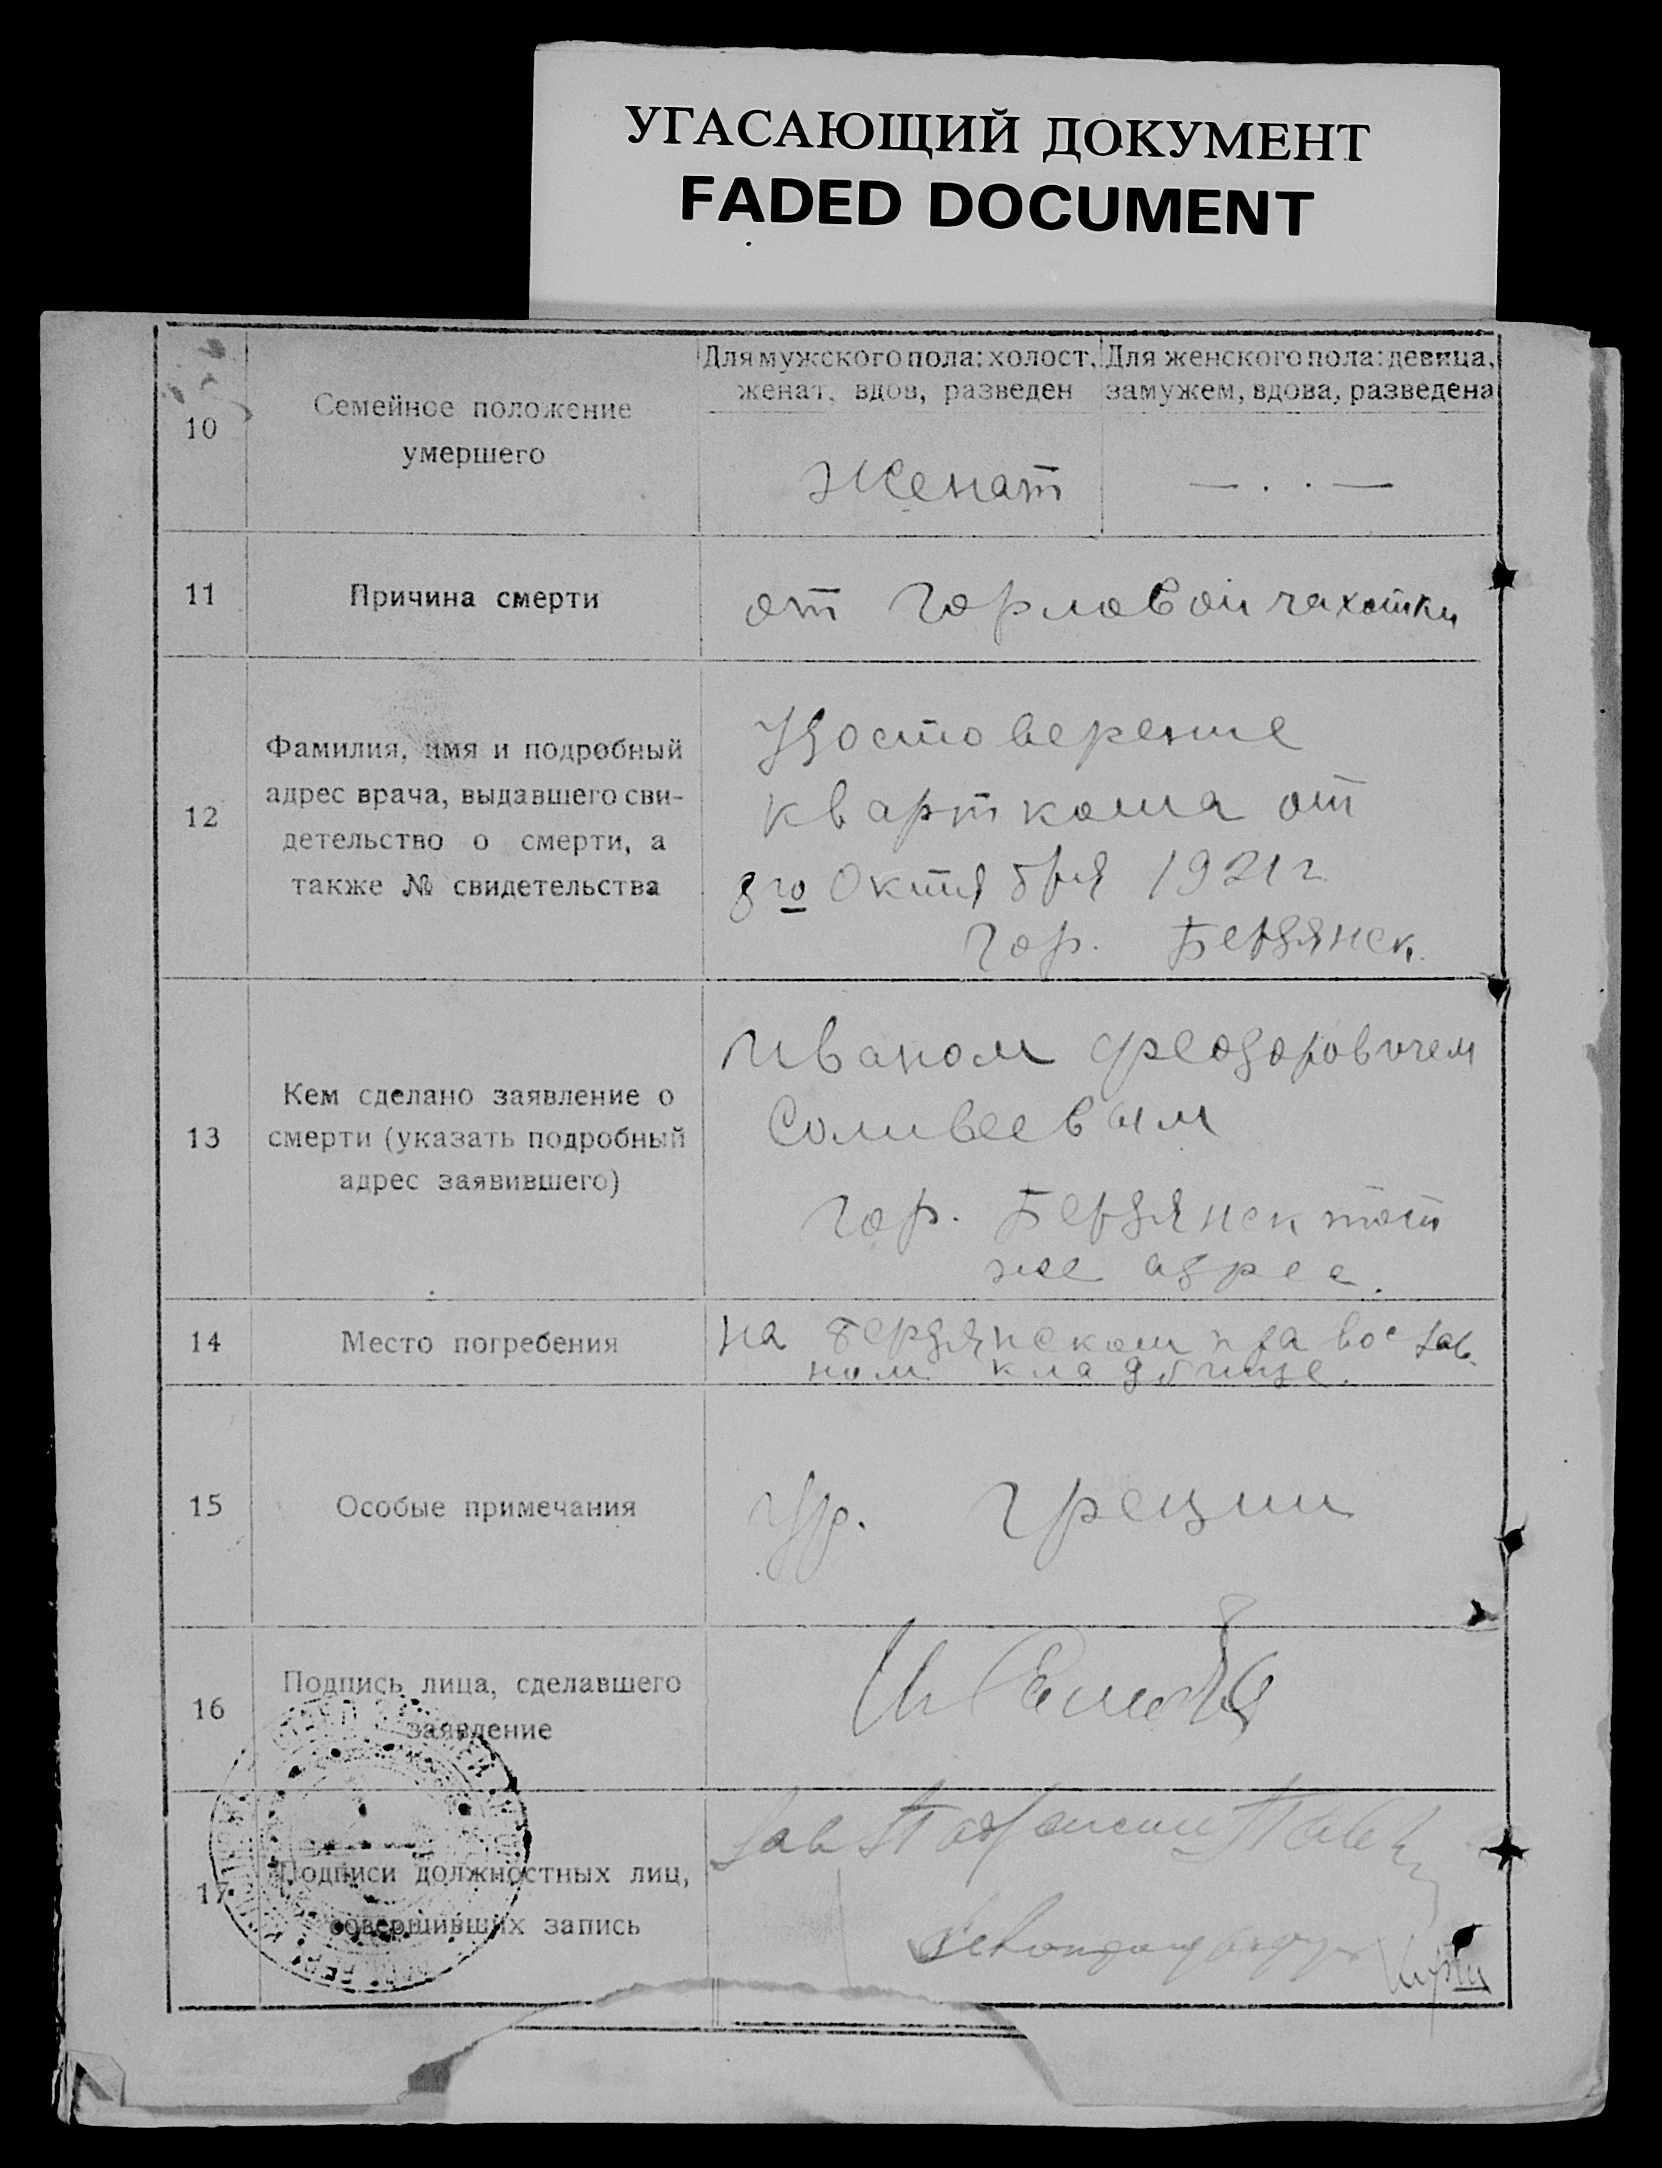 УГАСАЮЩИЙ ДОКУМЕНТ
FADED DOCUMENT
10
Семейное положение
умершего
Для мужского пола: холост,
женат, вдов, разведен
Для женского пола: девица,
замужем, вдова, разведена
Женат
— . . —
11
Причина смерти
от горловой чахотки
12
Фамилия, имя и подробный
адрес врача, выдавшего сви-
детельство о смерти, а
также № свидетельства
Удостоверение
кварткома от
8го Октября 1921 г
гор. Бердянск.
13
Кем сделано заявление о
смерти (указать подробный
адрес заявившего)
Иваном Феодоровичем
гор. Бердянск тот
же адрес.
14
Место погребения
на Бердянском
ном кладбище.
15
Особые примечания
ур. Греции
16
Подпись лица, сделавшего
заявление
17
Подписи должностных лиц,
совершивших запись
Зав